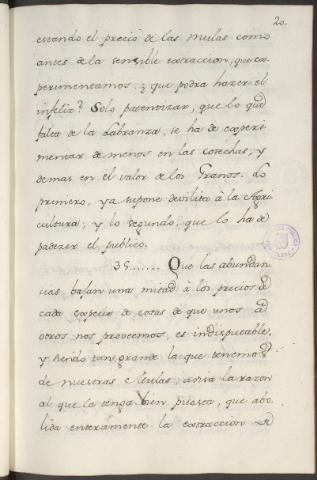 20.
estando el precio de las mulas como
antes de la sensible extraccion, que ex-
perimentamos: ¿ que podra hazer el
infeliz? Solo patentizar, que lo que
falta de la Labranza, se ha de experi-
mentar de menos en las cosechas, y
demas en el valor de los Granos. Lo
primero, ya supone devilita à la Agri-
cultura; y lo segundo, que lo ha de
padezer el publico.
35....... Que las abundan-
cias, bajan una mitad à los precios de
cada especie de cosas de que unos à
otros nos proveemos, es indisputable,
y siendo tan grande la que tenemos
de nuestras Mulas, avia la razon
al que la tenga bien puesta, que abo-
lida enteramente la extraccion de